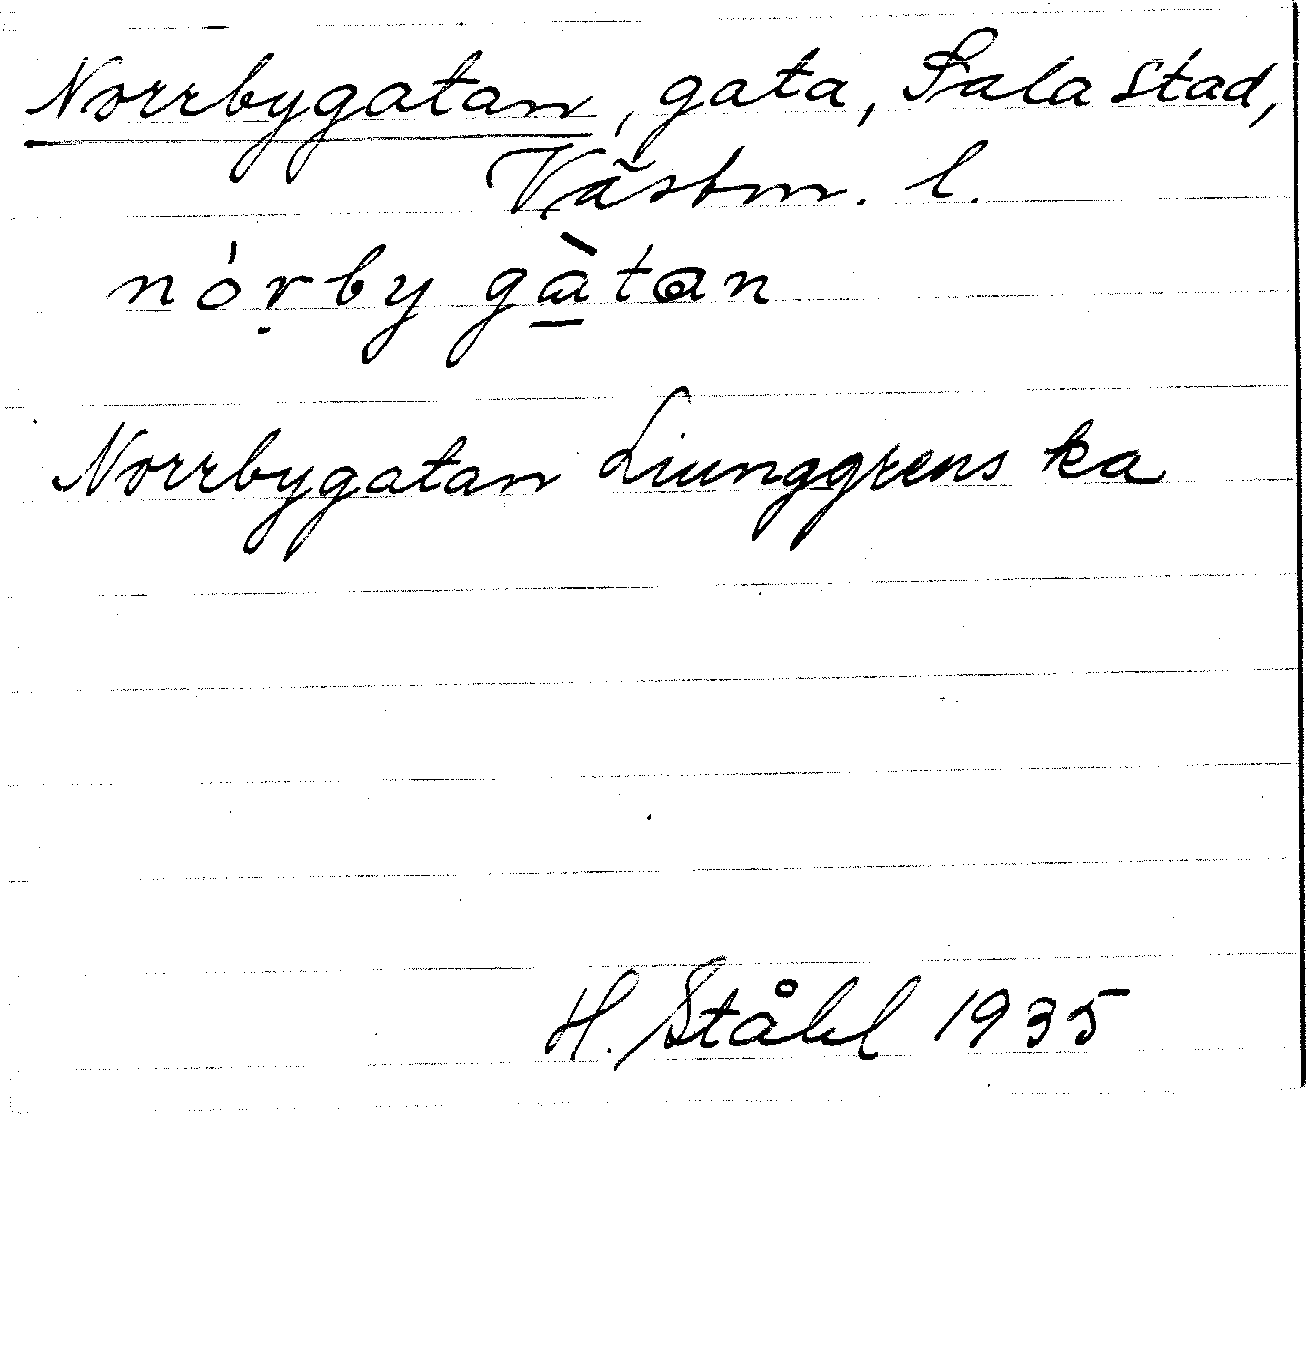 Norrbygatan, gata, Sala stad,
Västm. l.
nórby gàtan
Norrbygatan Liunggrens ka
H. Ståhl 1935